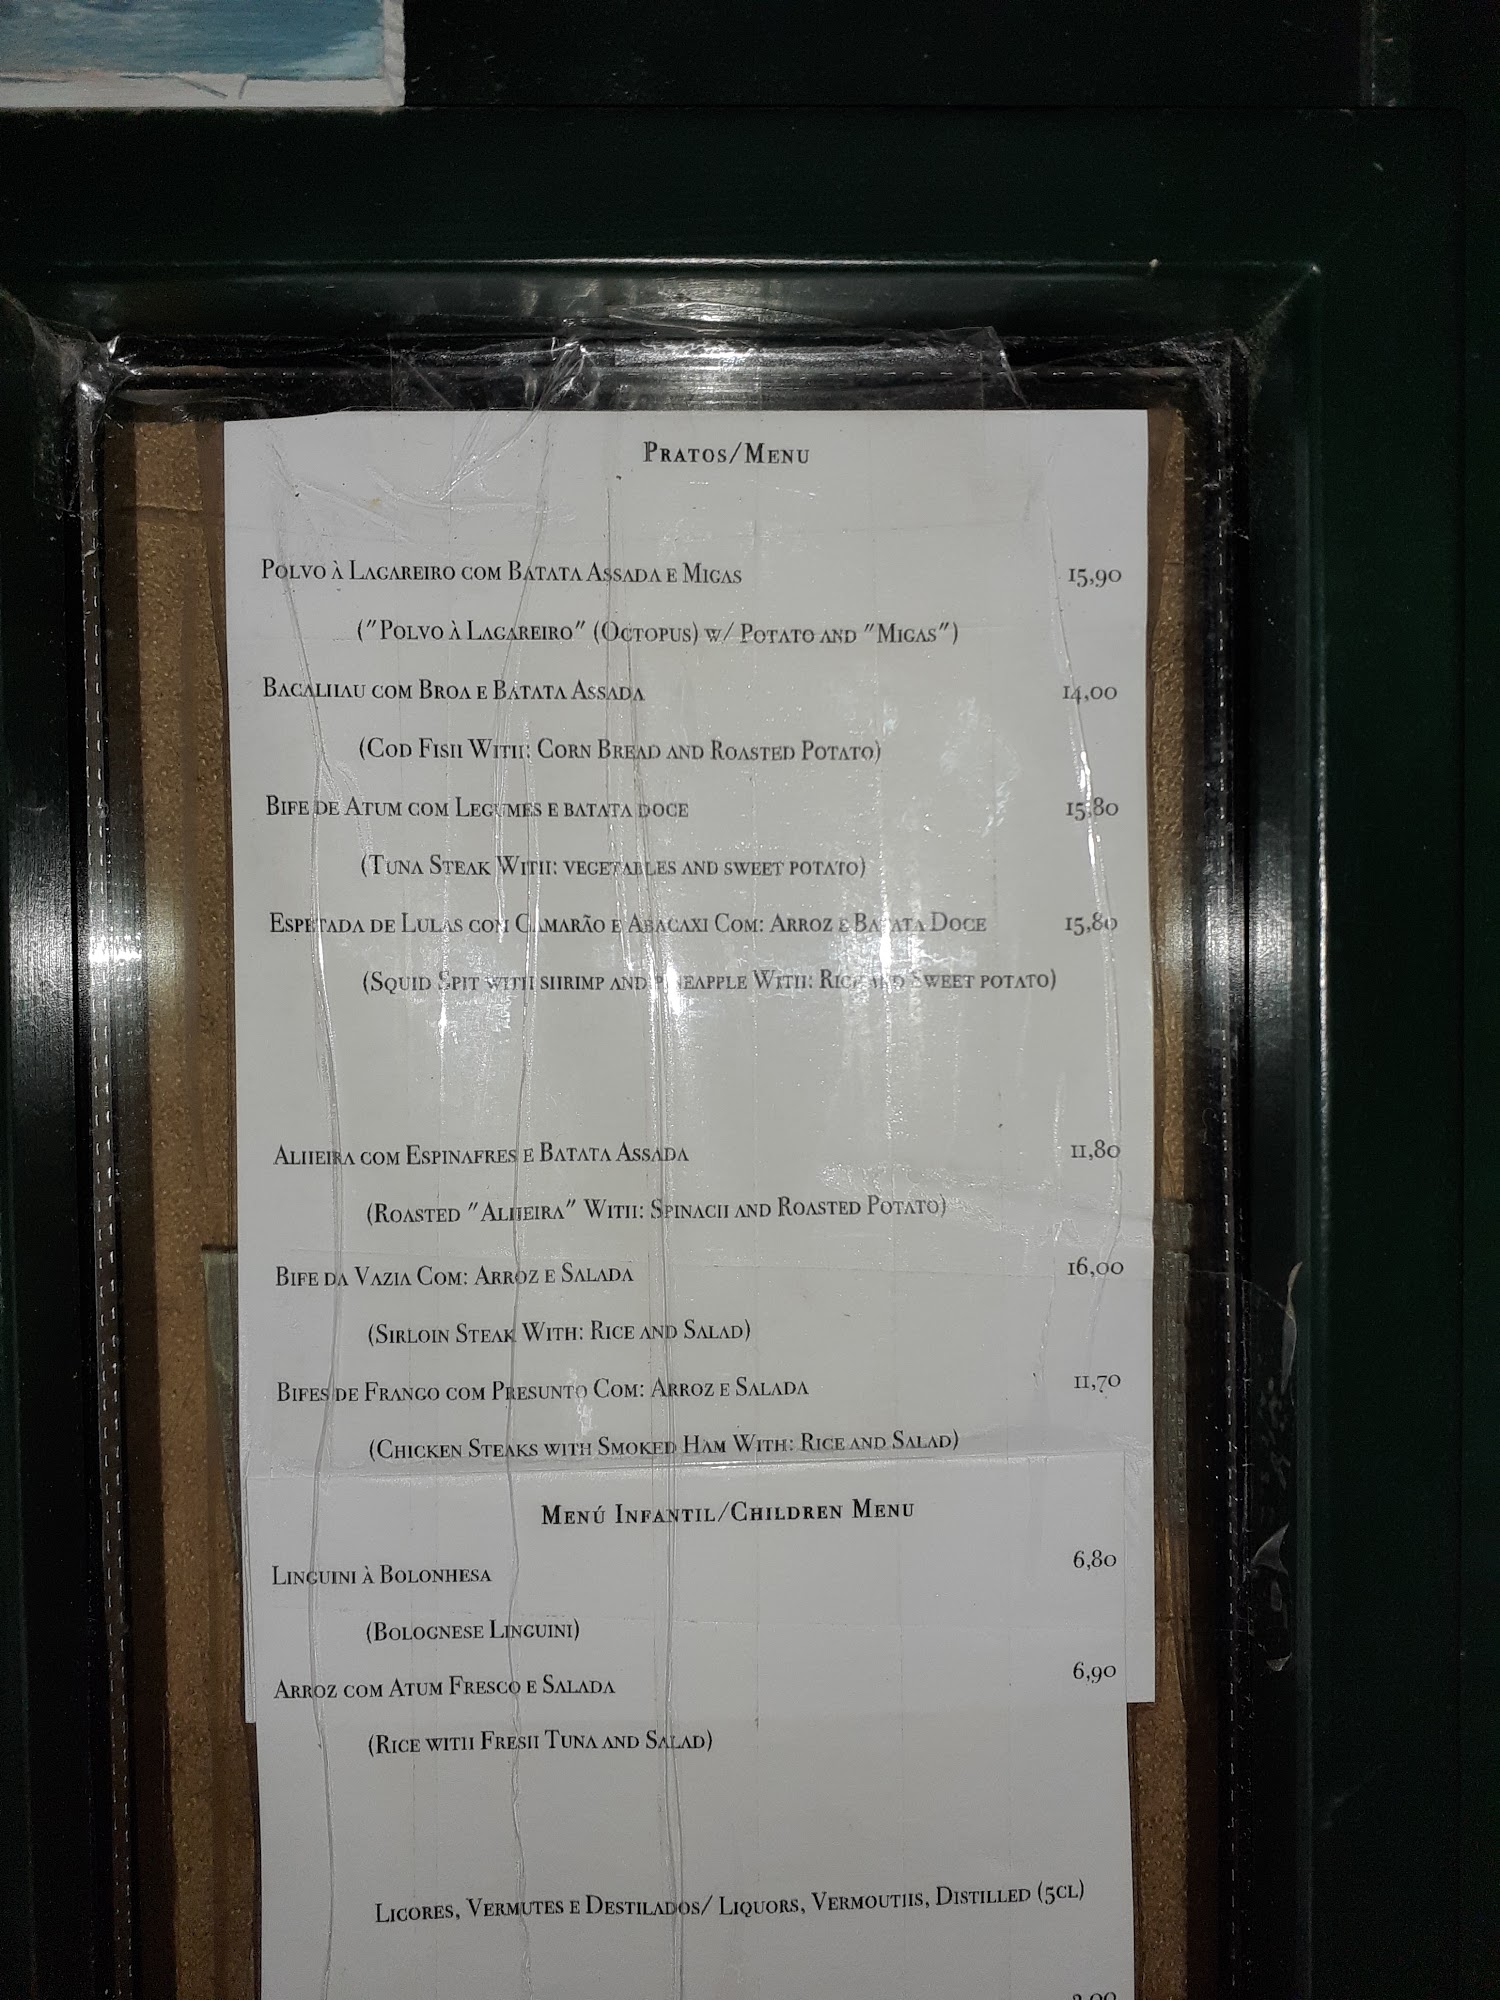 Pratos/Menu
Polvo à Lagareiro com Batata Assada e Migas 15,90
("Polvo à Lagareiro" (Octopus) w/ Potato and "Migas")
Bacalhau com Broa e Batata Assada 14,00
(Cod Fish With: Corn Bread and Roasted Potato)
Bife de Atum com Legumes e batata doce 15,80
(Tuna Steak With: vegetables and sweet potato)
Espetada de Lulas com Camarão e Abacaxi Com: Arroz e Batata Doce 15,80
(Squid Spit with shrimp and pineapple With: Rice and Sweet potato)
Alheira com Espinafres e Batata Assada 11,80
(Roasted "Alheira" With: Spinach and Roasted Potato)
Bife da Vazia Com: Arroz e Salada 16,00
(Sirloin Steak With: Rice and Salad)
Bifes de Frango com Presunto Com: Arroz e Salada 11,70
(Chicken Steaks with Smoked Ham With: Rice and Salad)
Menú Infantil/Children Menu
Linguini à Bolonhesa 6,80
(Bolognese Linguini)
Arroz com Atum Fresco e Salada 6,90
(Rice with Fresh Tuna and Salad)
Licores, Vermutes e Destilados/ Liquors, Vermouths, Distilled (5cl)